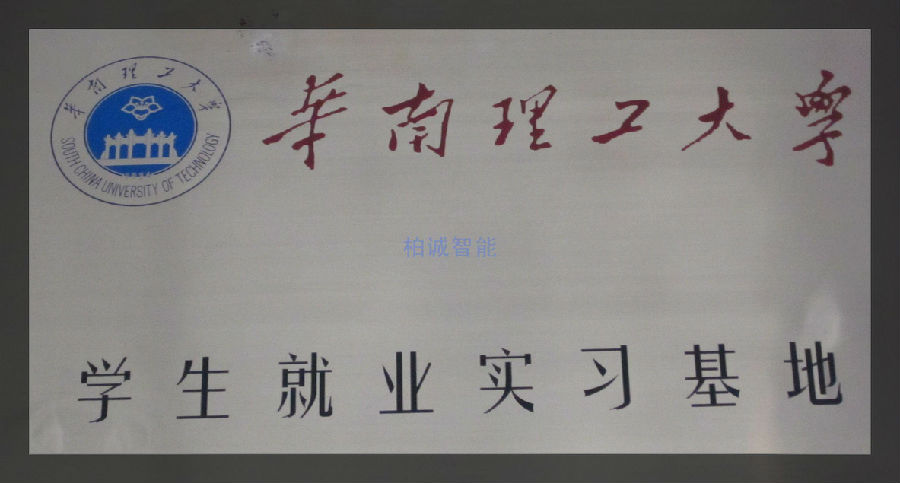 華南理工大學
SOUTH CHINA UNIVERSITY OF TECHNOLOGY
華南理工大學
柏诚智能
学生就业实习基地